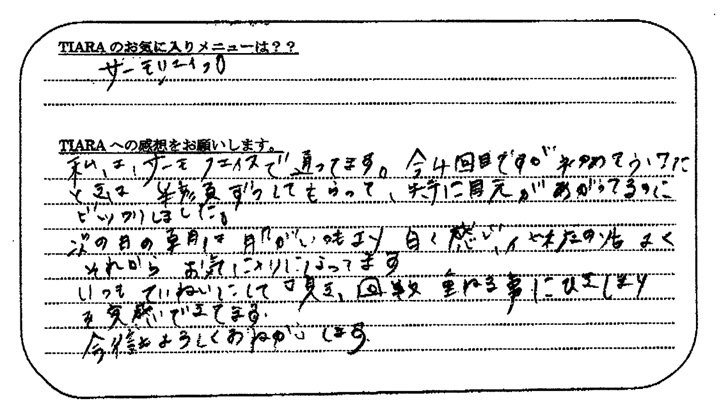 TIARAのお気に入りメニューは??
サーモリフェイス
TIARAへの感想をお願いします。
私は、サーモフェイスで通ってます。今4回目ですが初めてうけた
ときは 半顔ずつしてもらって、特に目元があがってるのに
ビックリしました。
次の日の朝は 肌がいつもより 白く感じ、
それから お気に入りになってます
いつもていねいにして頂き、回数重ねる事に引きしまり
を実感できてます。
今後もよろしくおねがいします。